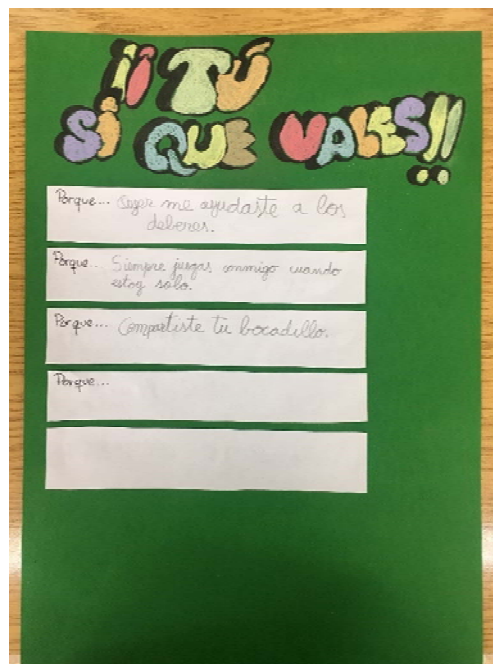 ¡¡ TÚ
SÍ QUE VALES!!
Porque... me ayudaste a los
deberes.
Porque... Siempre juegas conmigo cuando
estoy solo.
Porque... Compartiste tu bocadillo.
Porque...